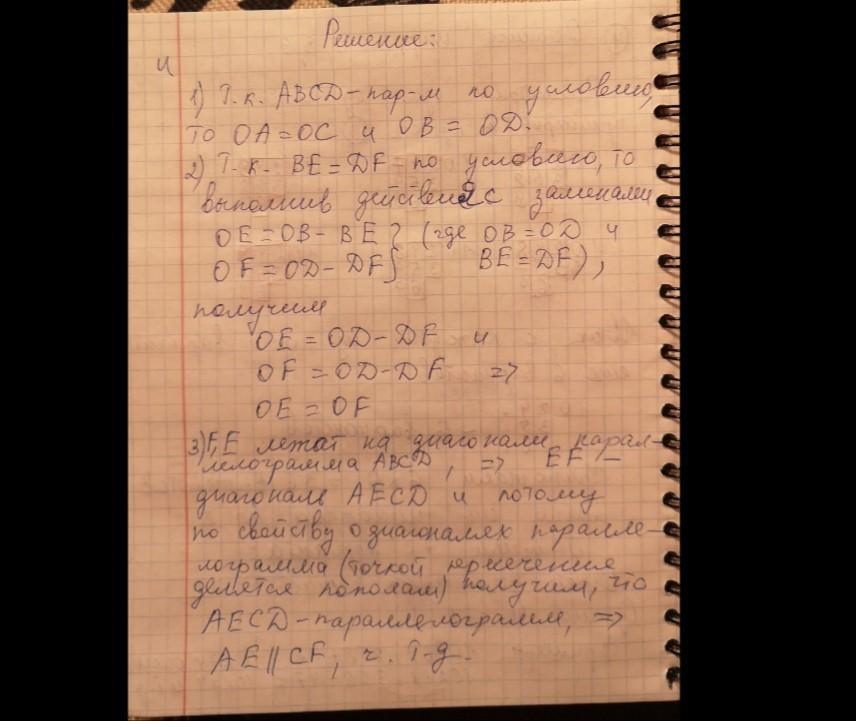 Решение:
и
1) Т.к. ABCD-пар-м по условию,
то OA=OC и OB = OD.
2) Т.к. BE = DF по условию, то
выполнив действия с заменами
OE = OB - BE } (где OB = OD и
OF = OD - DF } BE = DF),
получим
OE = OD - DF и
OF = OD - DF =>
OE = OF
3) F, E лежат на диагонали парал-
лелограмма ABCD, => EF -
диагональ AECD и потому
по свойству о диагоналях паралле-
лограмма (точкой пересечения
делятся пополам) получим, что
AECD - параллелограмм, =>
AE || CF, ч. т. д.